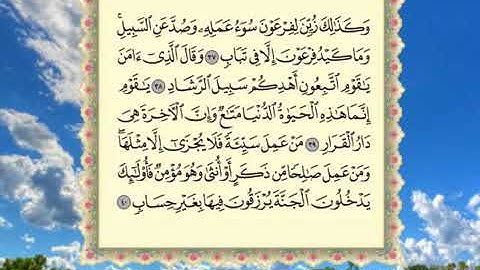 وَكَذَٰلِكَ زُيِّنَ لِفِرْعَوْنَ سُوٓءُ عَمَلِهِۦ وَصُدَّ عَنِ ٱلسَّبِيلِۚ
وَمَا كَيْدُ فِرْعَوْنَ إِلَّا فِى تَبَابٍ ٣٧ وَقَالَ ٱلَّذِىٓ ءَامَنَ
يَٰقَوْمِ ٱتَّبِعُونِ أَهْدِكُمْ سَبِيلَ ٱلرَّشَادِ ٣٨ يَٰقَوْمِ
إِنَّمَا هَٰذِهِ ٱلْحَيَوٰةُ ٱلدُّنْيَا مَتَٰعٌ وَإِنَّ ٱلْءَاخِرَةَ هِىَ
دَارُ ٱلْقَرَارِ ٣٩ مَنْ عَمِلَ سَيِّئَةً فَلَا يُجْزَىٰٓ إِلَّا مِثْلَهَاۖ
وَمَنْ عَمِلَ صَٰلِحًا مِّن ذَكَرٍ أَوْ أُنثَىٰ وَهُوَ مُؤْمِنٌ فَأُو۟لَٰٓئِكَ
يَدْخُلُونَ ٱلْجَنَّةَ يُرْزَقُونَ فِيهَا بِغَيْرِ حِسَابٍ ٤٠